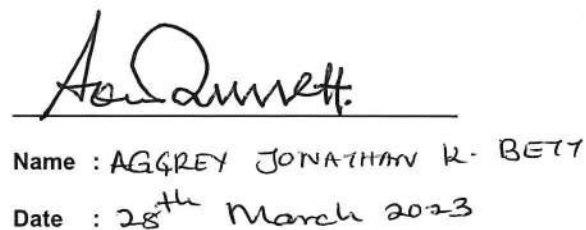 Name : AGGREY JONATHAN K. BETT
Date : 28th March 2023